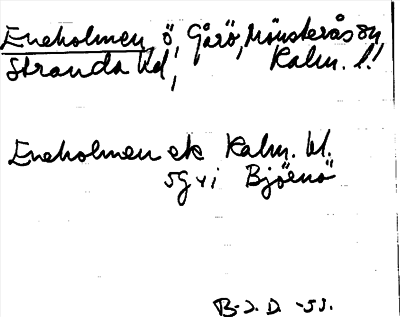 Eneholmen, ö, Gårö, Mönsterås sn,
Stranda hd, Kalm. l.
Eneholmen ek Kalm. bl.
5 g vi Björnö
B-J. D. -53.